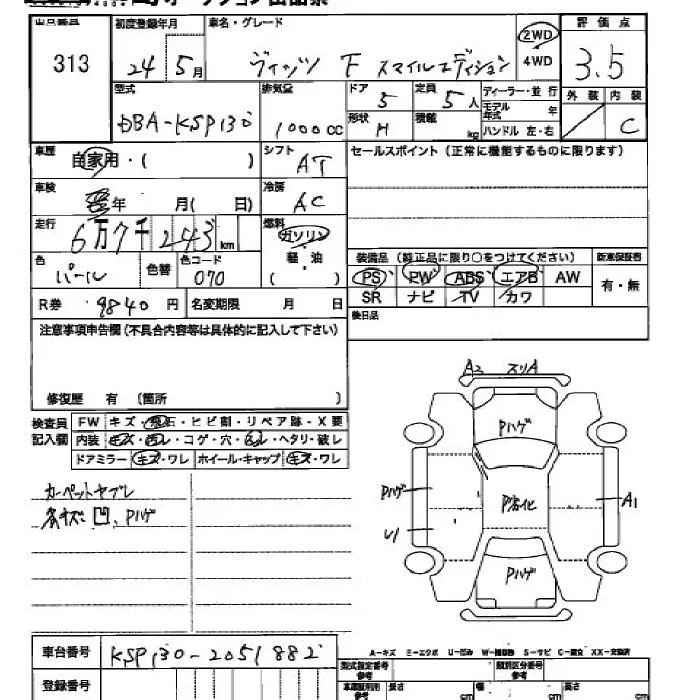 出品番号 初度登録年月 車名・グレード 評価点
313 24年5月 ヴィッツ F スマイルエディション 2WD 4WD 3.5
型式 排気量 ドア 定員 ディーラー・並行 外装 内装
DBA-KSP130 1000cc 5 5人 モデル年式 年 C
形状 H 積載 kg ハンドル 左・右
車歴 自家用・( ) シフト AT セールスポイント(正常に機能するものに限ります)
車検 年 月( 日) 冷房 AC
走行 6万7千243km 燃料 ガソリン 軽油 ( )
色 パール 色替 色コード 070
装備品(純正品に限り○をつけてください) 新車保証書
PS PW ABS エアB AW 有・無
SR ナビ TV カワ
R券 9840円 名変期限 月 日 後日品
注意事項申告欄(不具合内容等は具体的に記入して下さい)
修復歴 有 (箇所 )
検査員記入欄 FW キズ・飛石・ヒビ割・リペア跡・X要
内装 キズ・汚レ・コゲ・穴・ ・ヘタリ・破レ
ドアミラー キズ・ワレ ホイール・キャップ キズ・ワレ
カーペットヤブレ
各キズ凹、Pハゲ
A2 スリA
Pハゲ
Pハゲ P劣化 A1
U1
Pハゲ
車台番号 KSP130-2051882
A-キズ E-エクボ U-凹み W-補修跡 S-サビ C-腐食 XX-交換済
登録番号 型式指定番号 類別区分番号
車庫証明用参考 長さ cm 幅 cm 高さ cm